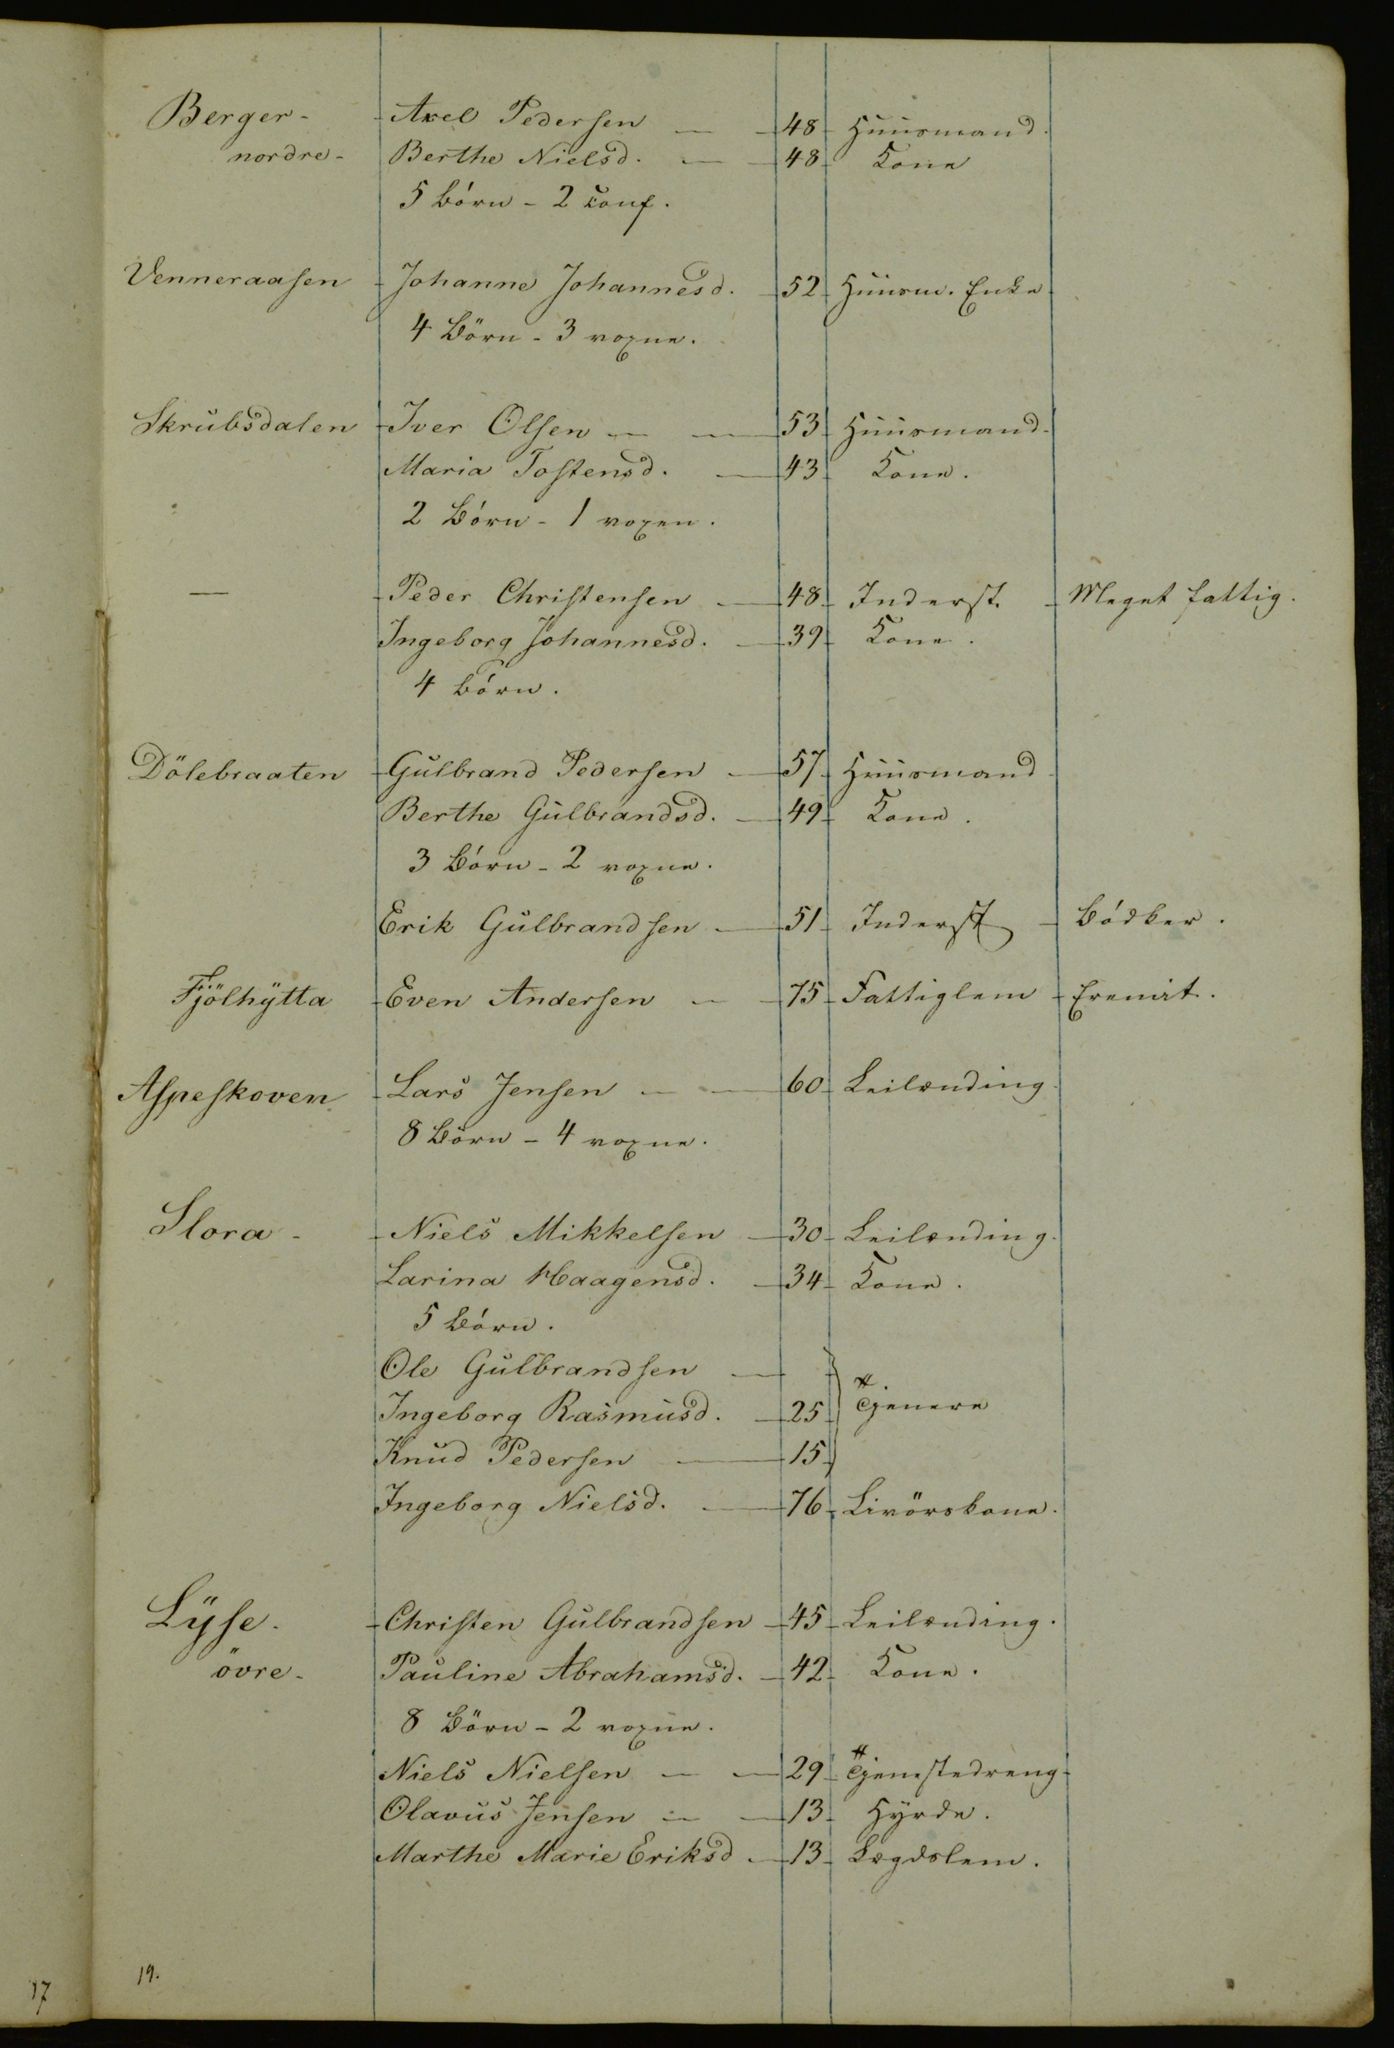 Berger - Axel Pedersen — 48 - Huusmand.
nordre - Berthe Nielsd. — 48 - Kone
5 Börn - 2 conf.
Venneraasen - Johanne Johannesd. - 52 - Huusm. Enke
4 Börn - 3 voxne.
Skrubsdalen - Iver Olsen — 53 - Huusmand.
Maria Tostensd. — 43 - Kone.
2 Börn - 1 voxen.
— - Peder Christensen — 48 - Inderst. - Meget fattig.
Ingeborg Johannesd. — 39 - Kone.
4 Börn.
Dölebraaten - Gulbrand Pedersen — 57 - Huusmand
Berthe Gulbrandsd. — 49 - Kone.
3 Börn - 2 voxne.
Erik Gulbrandsen — 51 - Inderst - Bödker.
Fjölhytta - Even Andersen — 75 - Fattiglem - Eremit.
Aspeskoven - Lars Jensen — 60 - Leilænding.
8 Börn - 4 voxne.
Slora - - Niels Mikkelsen — 30 - Leilænding.
Larina Haagensd. — 34 - Kone.
5 Börn.
Ole Gulbrandsen —
Ingeborg Rasmusd. — 25 - Tjenere
Knud Pedersen — 15 -
Ingeborg Nielsd. — 76 - Livörskone.
Lyse - - Christen Gulbrandsen - 45 - Leilænding.
övre - Pauline Abrahamsd. - 42 - Kone.
8 Börn - 2 voxne.
Niels Nielsen — 29 - Tjenestedreng -
Olavus Jensen — 13 - Hyrde.
Marthe Marie Eriksd - 13 - Lægdslem.
19.
17